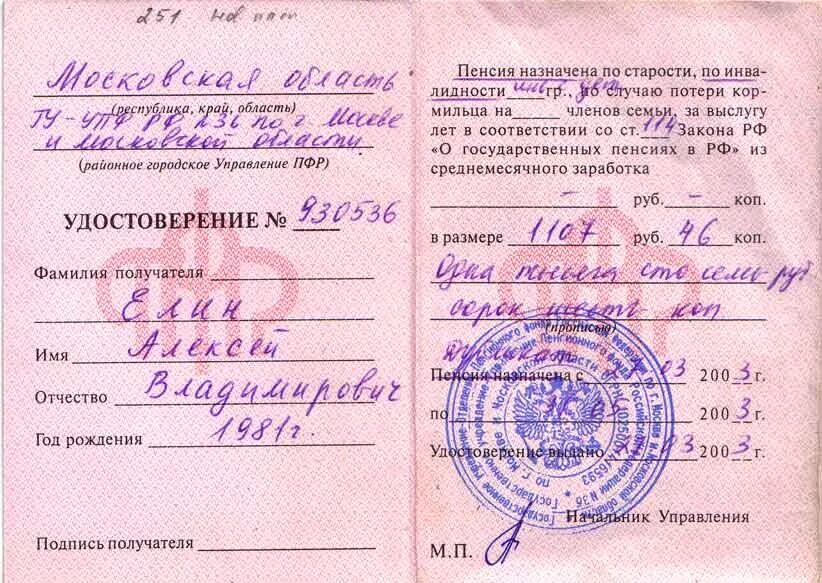 251
Московская область
(республика, край, область)
ГУ-УПФ РФ №36 по г. Москве
и Московской области
(районное городское Управление ПФР)
УДОСТОВЕРЕНИЕ № 930536
Фамилия получателя
Елин
Имя Алексей
Отчество Владимирович
Год рождения 1981г.
Подпись получателя
Пенсия назначена по старости, по инва-
лидности инв. дет. гр., по случаю потери кор-
мильца на членов семьи, за выслугу
лет в соответствии со ст. 114 Закона РФ
«О государственных пенсиях в РФ» из
среднемесячного заработка
– руб. – коп.
в размере 1107 руб. 46 коп.
Одна тысяча сто семь руб
сорок шесть коп
(прописью)
Дубликат
Пенсия назначена с 03 2003 г.
по 03 2003 г.
Удостоверение выдано 03 2003 г.
Начальник Управления
М.П.